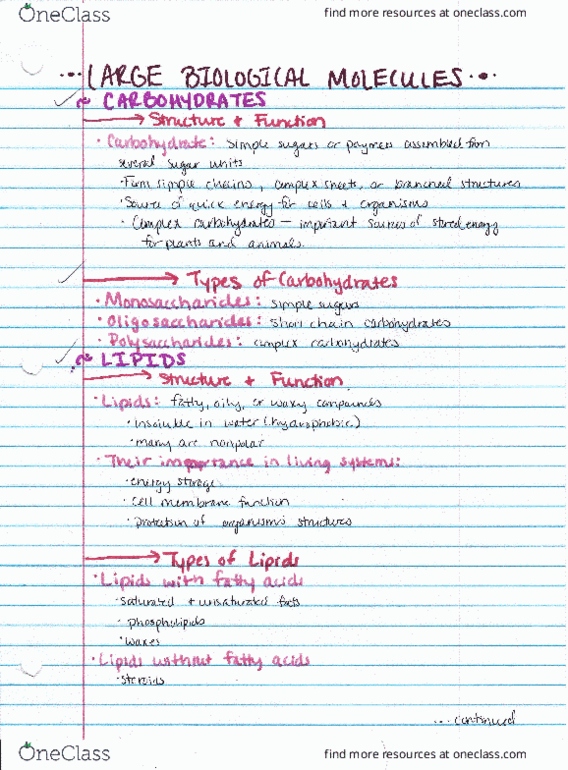 OneClass
find more resources at oneclass.com
...LARGE BIOLOGICAL MOLECULES...
✓ ~ CARBOHYDRATES
→ Structure + Function
• Carbohydrate: simple sugars or polymers assembled from
several sugar units
• Form simple chains, complex sheets, or branched structures
• Source of quick energy for cells + organisms
• Complex carbohydrates — important sources of stored energy
for plants and animals.
✓ → Types of Carbohydrates
• Monosaccharides: simple sugars
• Oligosaccharides: short chain carbohydrates
• Polysaccharides: complex carbohydrates
✓ ~ LIPIDS
→ Structure + Function
• Lipids: fatty, oily, or waxy compounds
• insoluble in water (hydrophobic)
• many are nonpolar
• Their importance in living systems:
• energy storage
• cell membrane function
• protection of organisms structures
→ Types of Lipids
• Lipids with fatty acids
• saturated + unsaturated fats
• phospholipids
• waxes
• Lipids without fatty acids
• steroids
... continued
OneClass
find more resources at oneclass.com